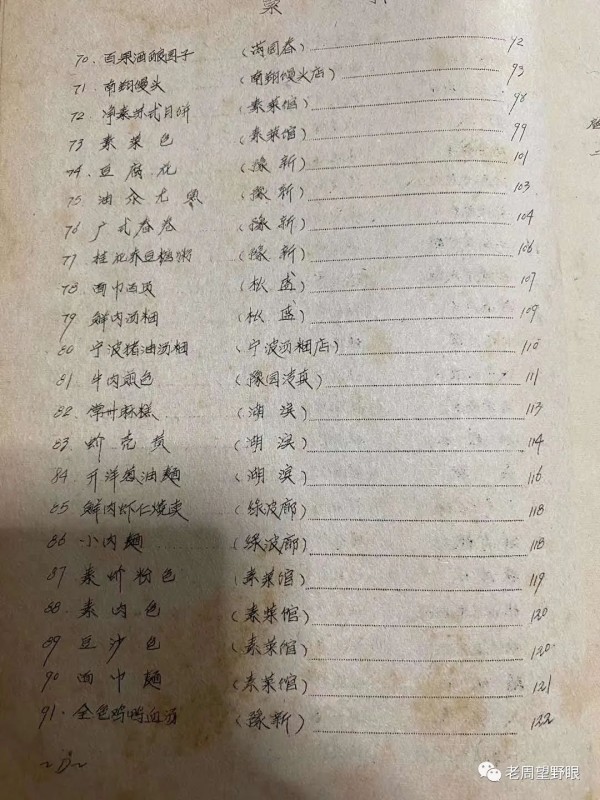 70. 百果酒酿园子 (满园春) 92
71. 南翔馒头 (南翔馒头店) 93
72. 净素苏式月饼 (素菜馆) 98
73 素菜包 (素菜馆) 99
74. 豆腐花 (豫新) 101
75. 油氽尤 (豫新) 103
76 广式春卷 (豫新) 104
77 桂花赤豆糖粥 (豫新) 106
78. 面巾百页 (松盛) 107
79 鲜肉汤糰 (松盛) 109
80 宁波猪油汤糰 (宁波汤糰店) 110
81 牛肉煎包 (豫园清真) 111
82. 常州麻糕 (湖滨) 113
83. 蚧壳黄 (湖滨) 114
84 开洋葱油麵 (湖滨) 116
85 鲜肉虾仁烧卖 (绿波廊) 118
86 小肉麵 (绿波廊) 118
87 素蚧粉包 (素菜馆) 119
88. 素肉包 (素菜馆) 120
89 豆沙包 (素菜馆) 120
90 面巾麵 (素菜馆) 121
91. 全色鸡鸭血汤 (豫新) 122
老周望野眼